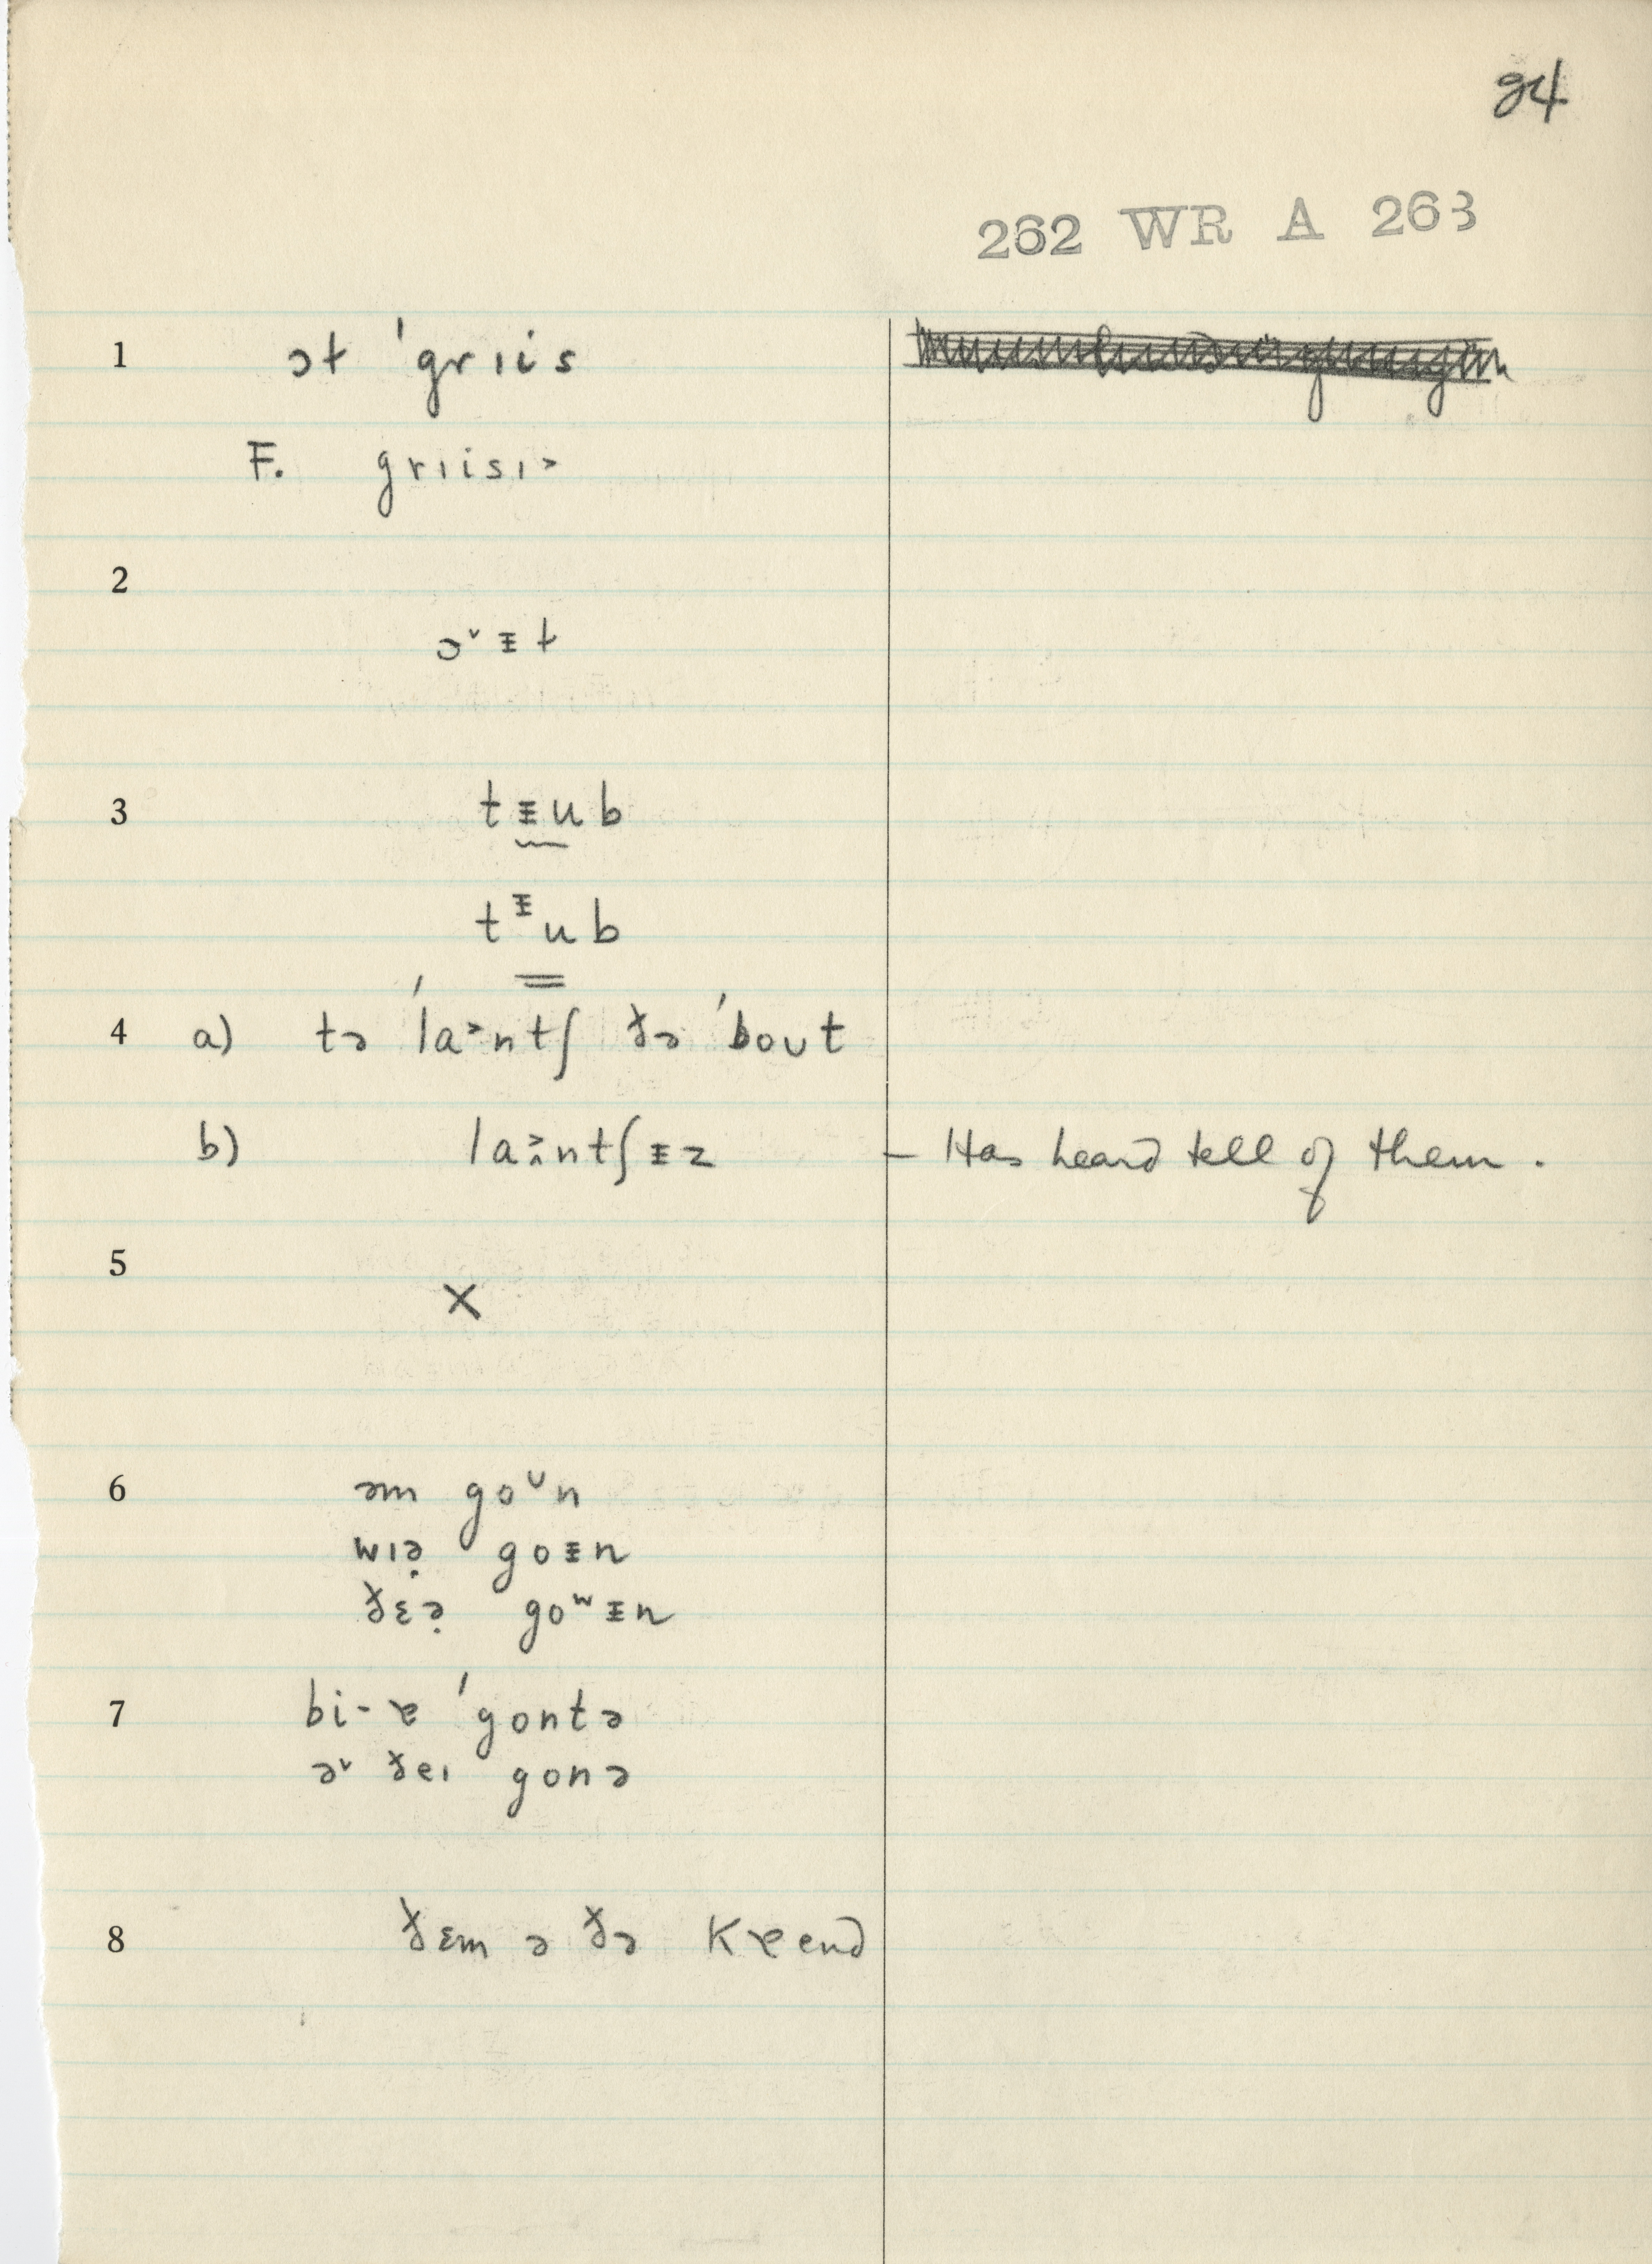 24
262 WR A 263
1 ɔt ˈgrɪis
F. grɪisɪ˃
2
ɔ˅ᵻt
3 tᵻub
tᵻub
4 a) tə ˈla˃ntʃ ðə ˈbout
b) la˃ntʃᵻz – Has heard tell of them.
5
X
6 əm goᶸn
wɪə̣ goᵻn
ðɛə̣ goʷᵻn
7 bi-ɐ ˈgontə
ə˅ ðeɪ gonə
8 ðɛm ə ðə kɐend